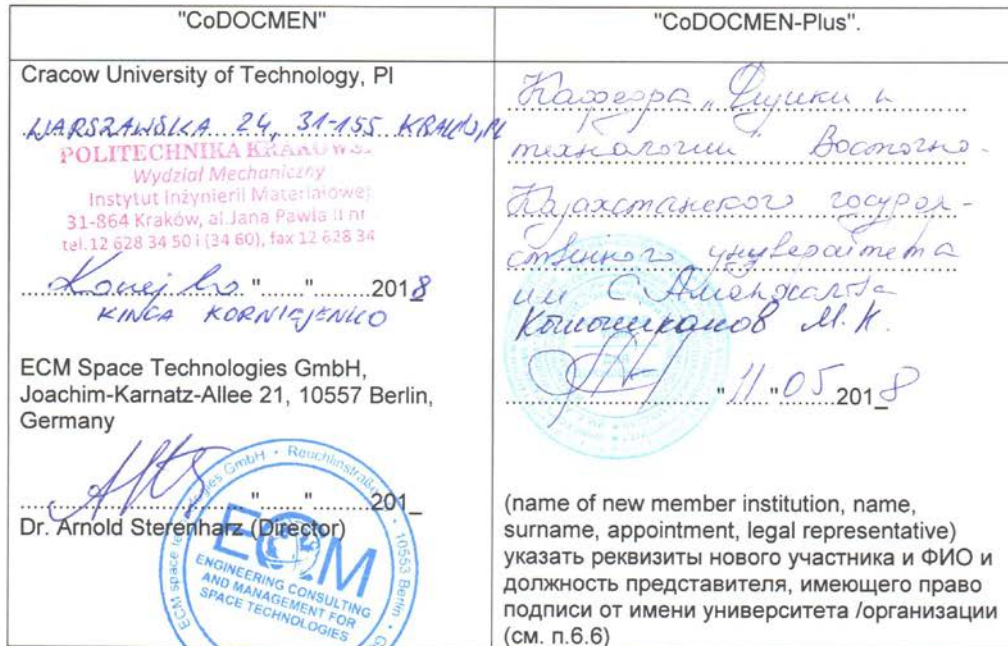 "CoDOCMEN"
Cracow University of Technology, Pl
WARSZAWSKA 24, 31-155 KRAKÓW, PL
POLITECHNIKA
Wydział Mechaniczny
Instytut Inżynierii Materiałowej
31-864 Kraków, al.Jana Pawła II nr
tel.12 628 34 50 i (34 60), fax 12 628 34
"......"........2018
KINGA KORNIEJENKO
ECM Space Technologies GmbH,
Joachim-Karnatz-Allee 21, 10557 Berlin,
Germany
"......"........201_
Dr. Arnold Sterenharz (Director)
ECM space technologies GmbH • Reuchlinstraße • 10553 Berlin •
ECM
ENGINEERING CONSULTING
AND MANAGEMENT FOR
SPACE TECHNOLOGIES
"CoDOCMEN-Plus".
Кафедра „Физики и
технологии Восточно-
Казахстанского государ-
ственного университета
им С Аманжолова
М. К.
"11."05 2018
(name of new member institution, name,
surname, appointment, legal representative)
указать реквизиты нового участника и ФИО и
должность представителя, имеющего право
подписи от имени университета /организации
(см. п.6.6)